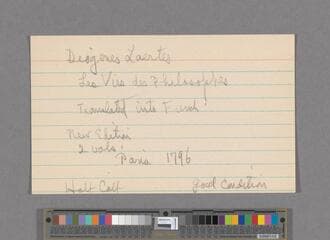 Diogenes Laertes
Les Vies des Philosophes
Translated into French
New Edition
2 vols.
Paris 1796
Half Calf
Good Condition